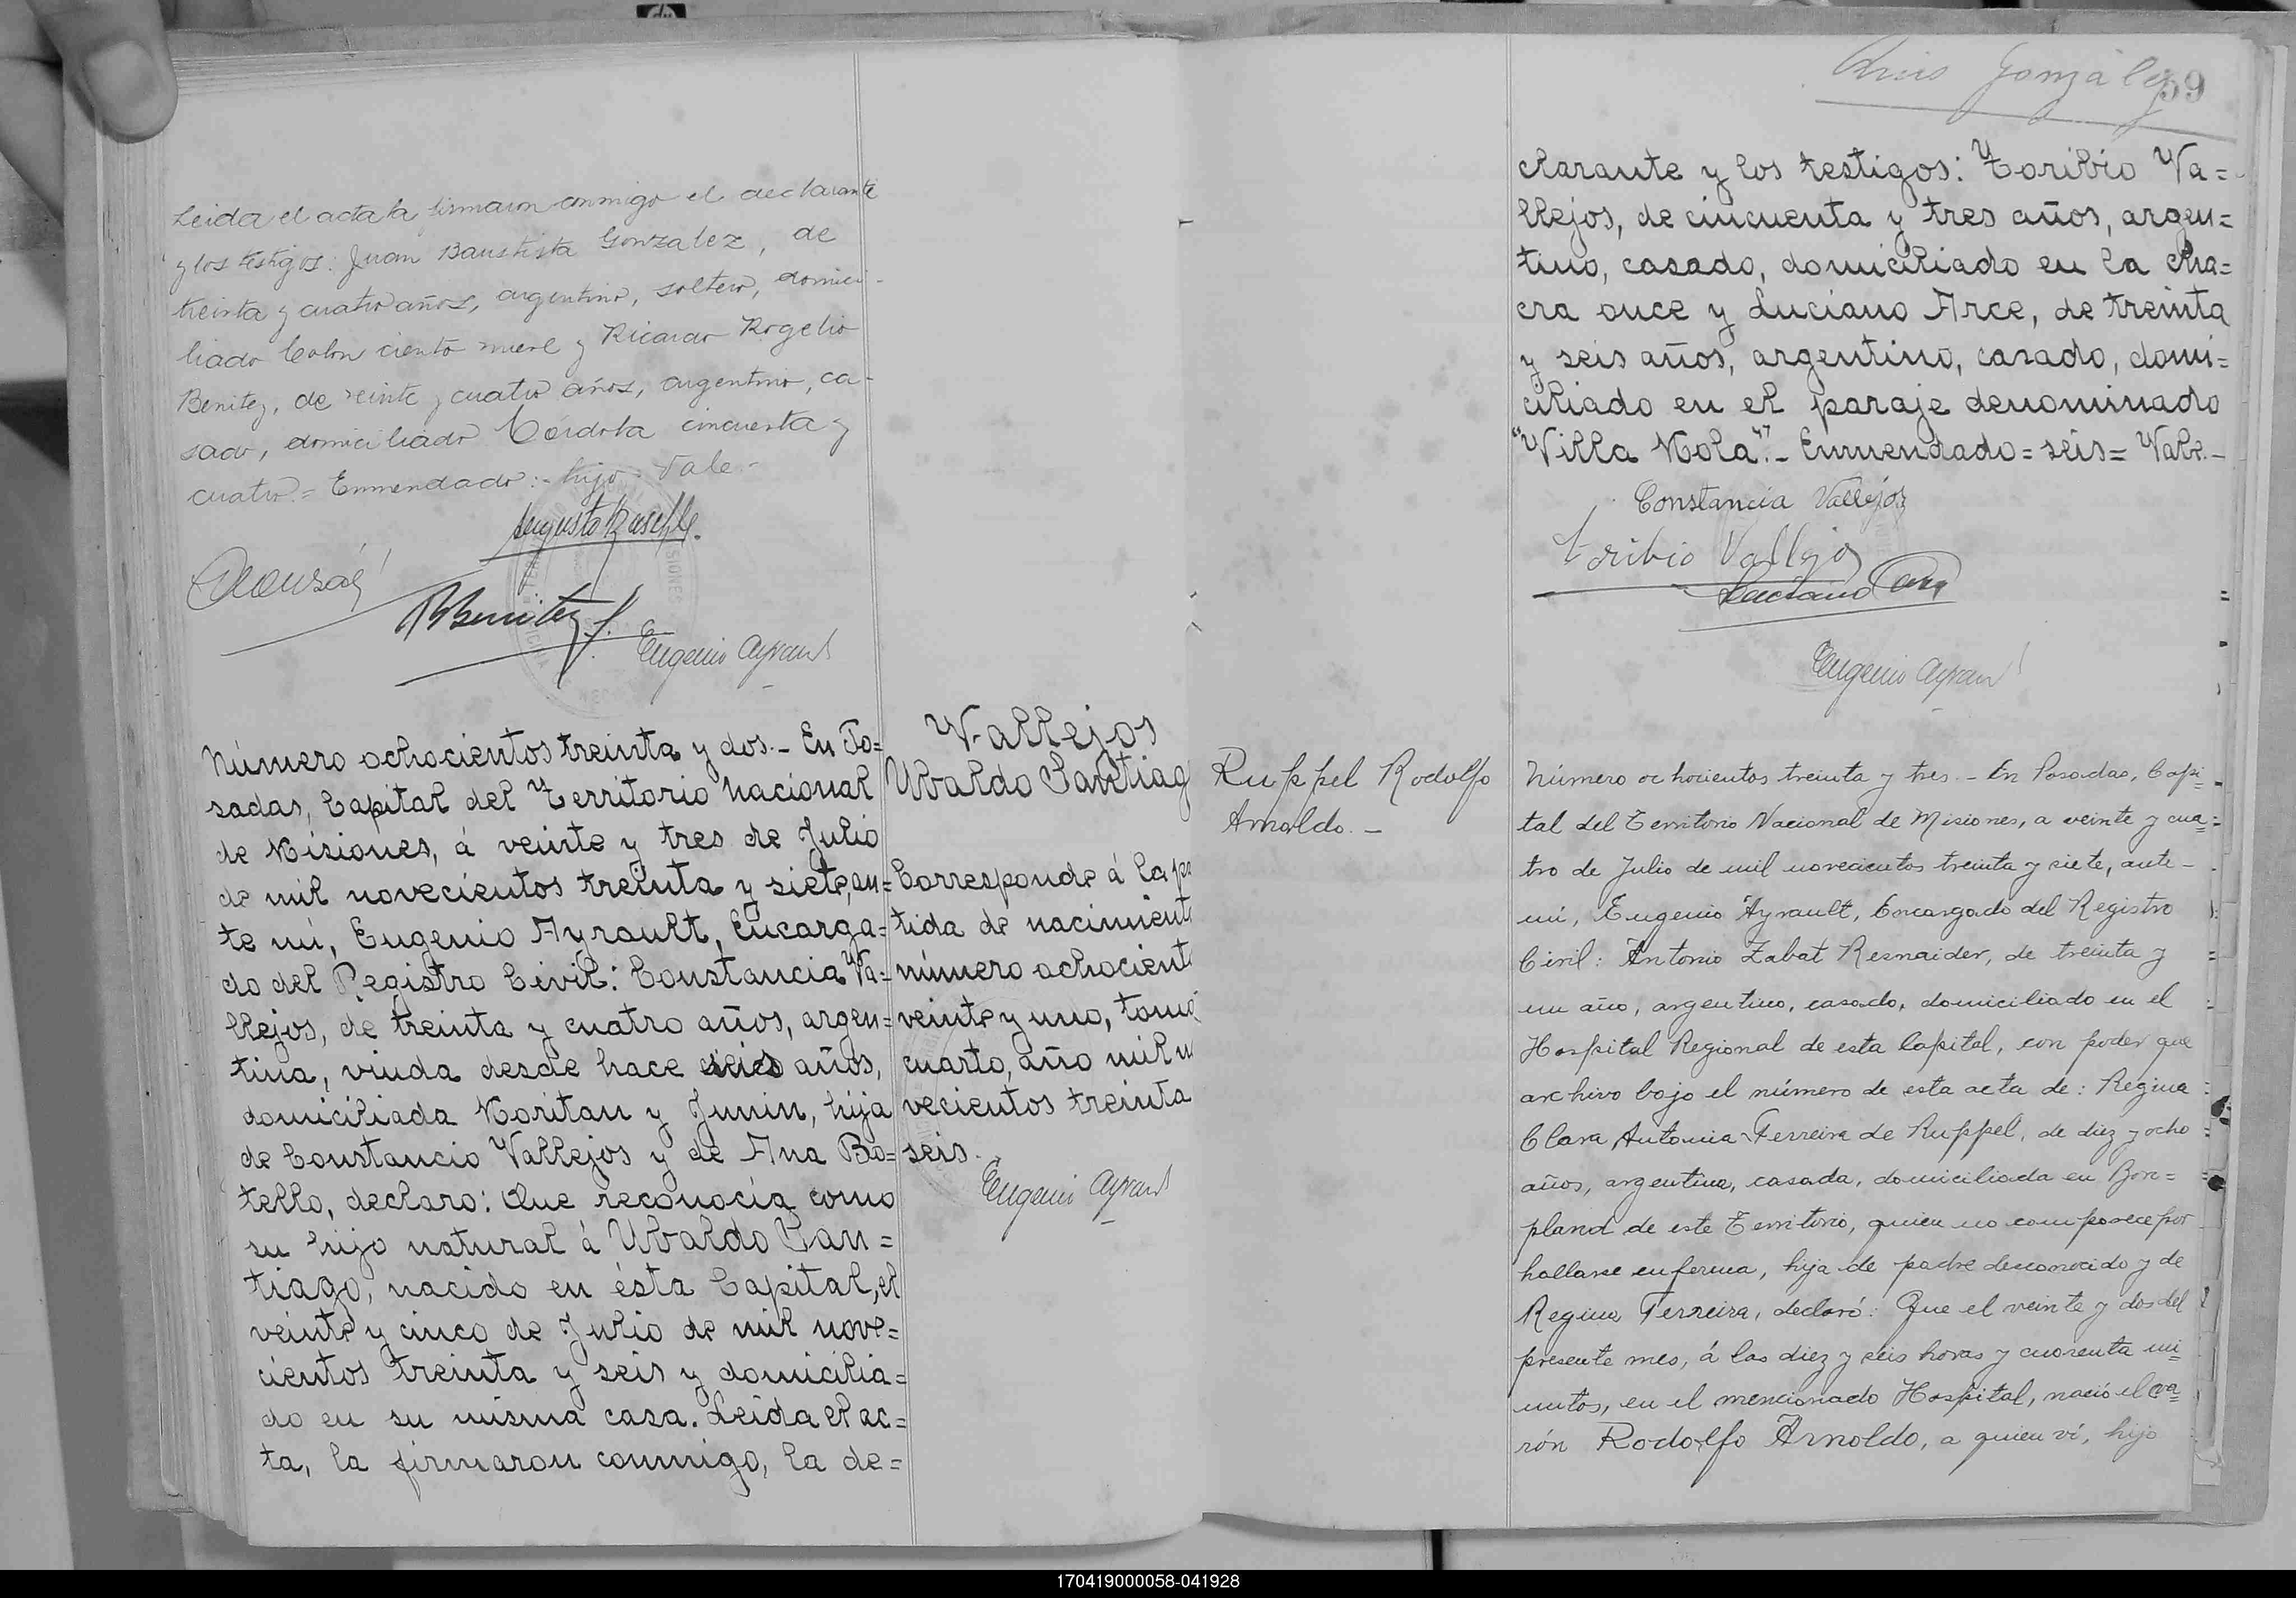 Leida el acta la firmaron conmigo el declarante
y los testigos: Juan Baustista Gonzalez, de
treinta y cuatro años, argentino, soltero, domici-
liado Colon ciento nueve y Ricardo Rogelio
Benitez, de veinte y cuatro años, argentino, ca-
sado, domiciliado Córdoba cincuenta y
cuatro.= Enmendado:- hijo- Vale-
Augusto
RBenitez
Eugenio Ayrault
Número ochocientos treinta y dos.- En Po=
sadas, Capital del Territorio Nacional
de Misiones, á veinte y tres de Julio
de mil novecientos treinta y siete, an=
te mí, Eugenio Ayrault, Encarga=
do del Registro Civil: Constancia Va=
llejos, de treinta y cuatro años, argen=
tina, viuda desde hace seis años,
domiciliada Moritan y Junin, hija
de Constancio Vallejos y de Ana Bo=
tello, declaro: Que reconocía como
su hijo natural á Ubaldo San=
tiago, nacido en ésta Capital, el
veinte y cinco de Julio de mil nove=
cientos treinta y seis y domicilia=
do en su misma casa. Leida el ac=
ta, la firmaron conmigo, la de=
Vallejos
Ubaldo Santiag
Corresponde á la pa
tida de nacimient
número ochocient
veinte y uno, tomo
cuarto, año mil n
vecientos treinta
seis.
Eugenio Ayrault
Luis González
59
clarante y los testigos: Toribio Va=
llejos, de cincuenta y tres años, argen=
tino, casado, domiciliado en la cha=
cra once y Luciano Arce, de treinta
y seis años, argentino, casado, domi=
ciliado en el paraje denominado
"Villa Mola".- Enmendado=seis=Vale.-
Constancia Vallejos
Toribio Vallejos
Luciano Arce
Eugenio Ayrault
Ruppel Rodolfo
Arnoldo.-
Número ochocientos treinta y tres.- En Posadas, Capi=
tal del Territorio Nacional de Misiones, a veinte y cua=
tro de Julio de mil novecientos treinta y siete, ante-
mí, Eugenio Ayrault, Encargado del Registro
Civil: Antonio Zabat Resnaider, de treinta y
un año, argentino, casado, domiciliado en el
Hospital Regional de esta Capital, con poder que
archivo bajo el número de esta acta de: Regina
Clara Antonia Ferreira de Ruppel, de diez y ocho
años, argentina, casada, domiciliada en Bon=
pland de este Territorio, quien no comparece por
hallarse enferma, hija de padre desconocido y de
Regina Ferreira, declaró: Que el veinte y dos del
presente mes, á las diez y seis horas y cuarenta mi=
nutos, en el mencionado Hospital, nació el va=
rón Rodolfo Arnoldo, a quien ví, hijo
170419000058-041928